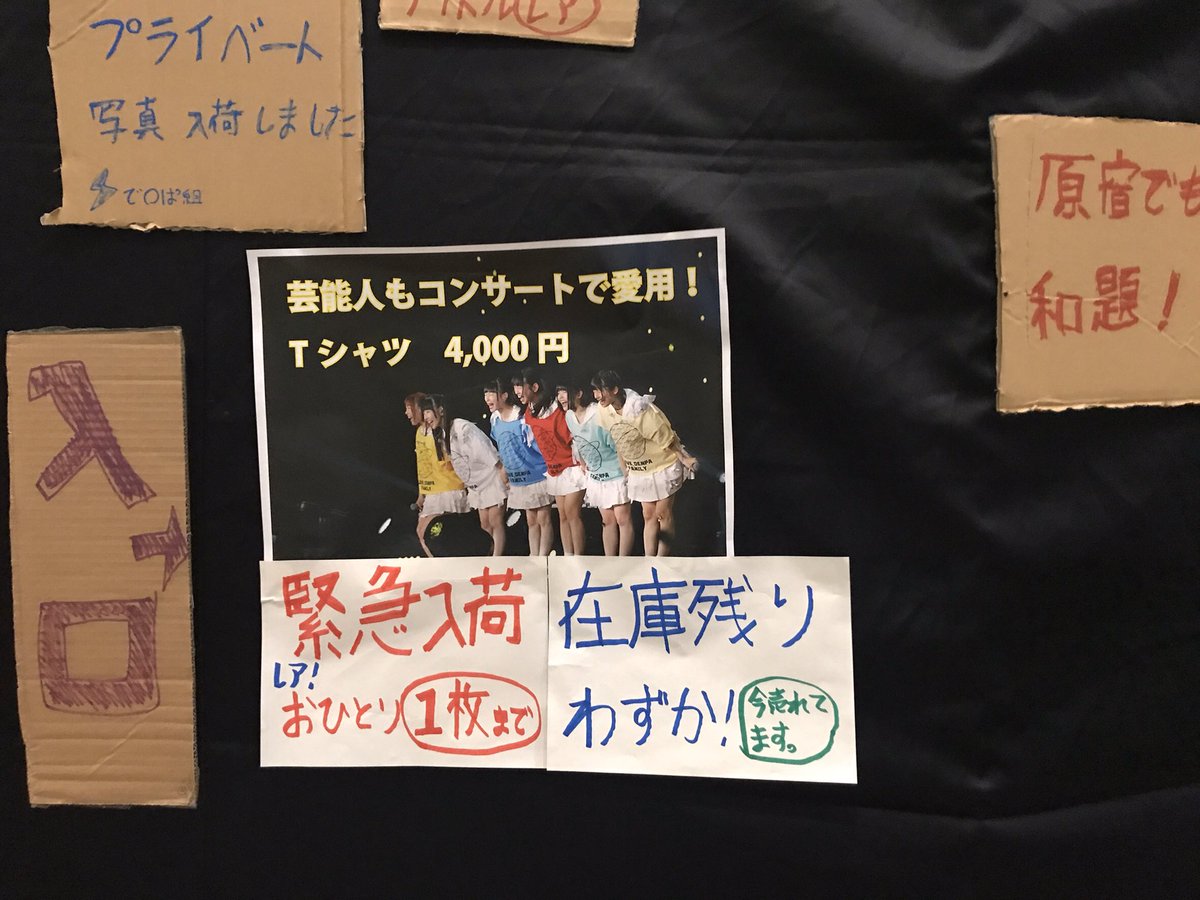 プライベート
写真 入荷しました
で〇ぱ組
原宿でも
和題!
芸能人もコンサートで愛用!
Tシャツ 4,000円
DENPA
FAMILY
緊急入荷
レア!
おひとり1枚まで
在庫残り
わずか!
今売れて
ます。